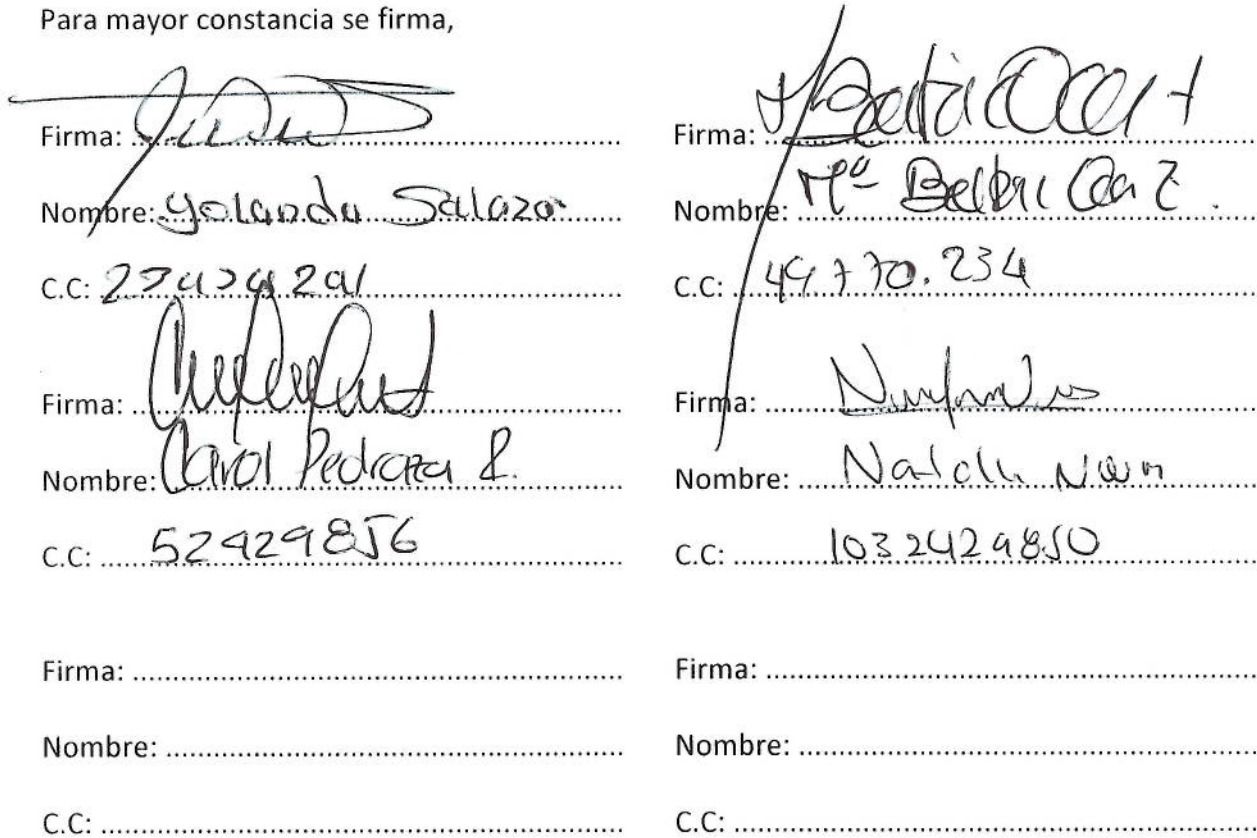 Para mayor constancia se firma,
Firma:
Nombre: Yolanda Salazar
C.C:
Firma:
Nombre: Carol Pedraza R.
C.C: 52929856
Firma:
Nombre:
C.C:
Firma:
Nombre: Mª
C.C: 49770.234
Firma:
Nombre:
C.C: 1032429850
Firma:
Nombre:
C.C: